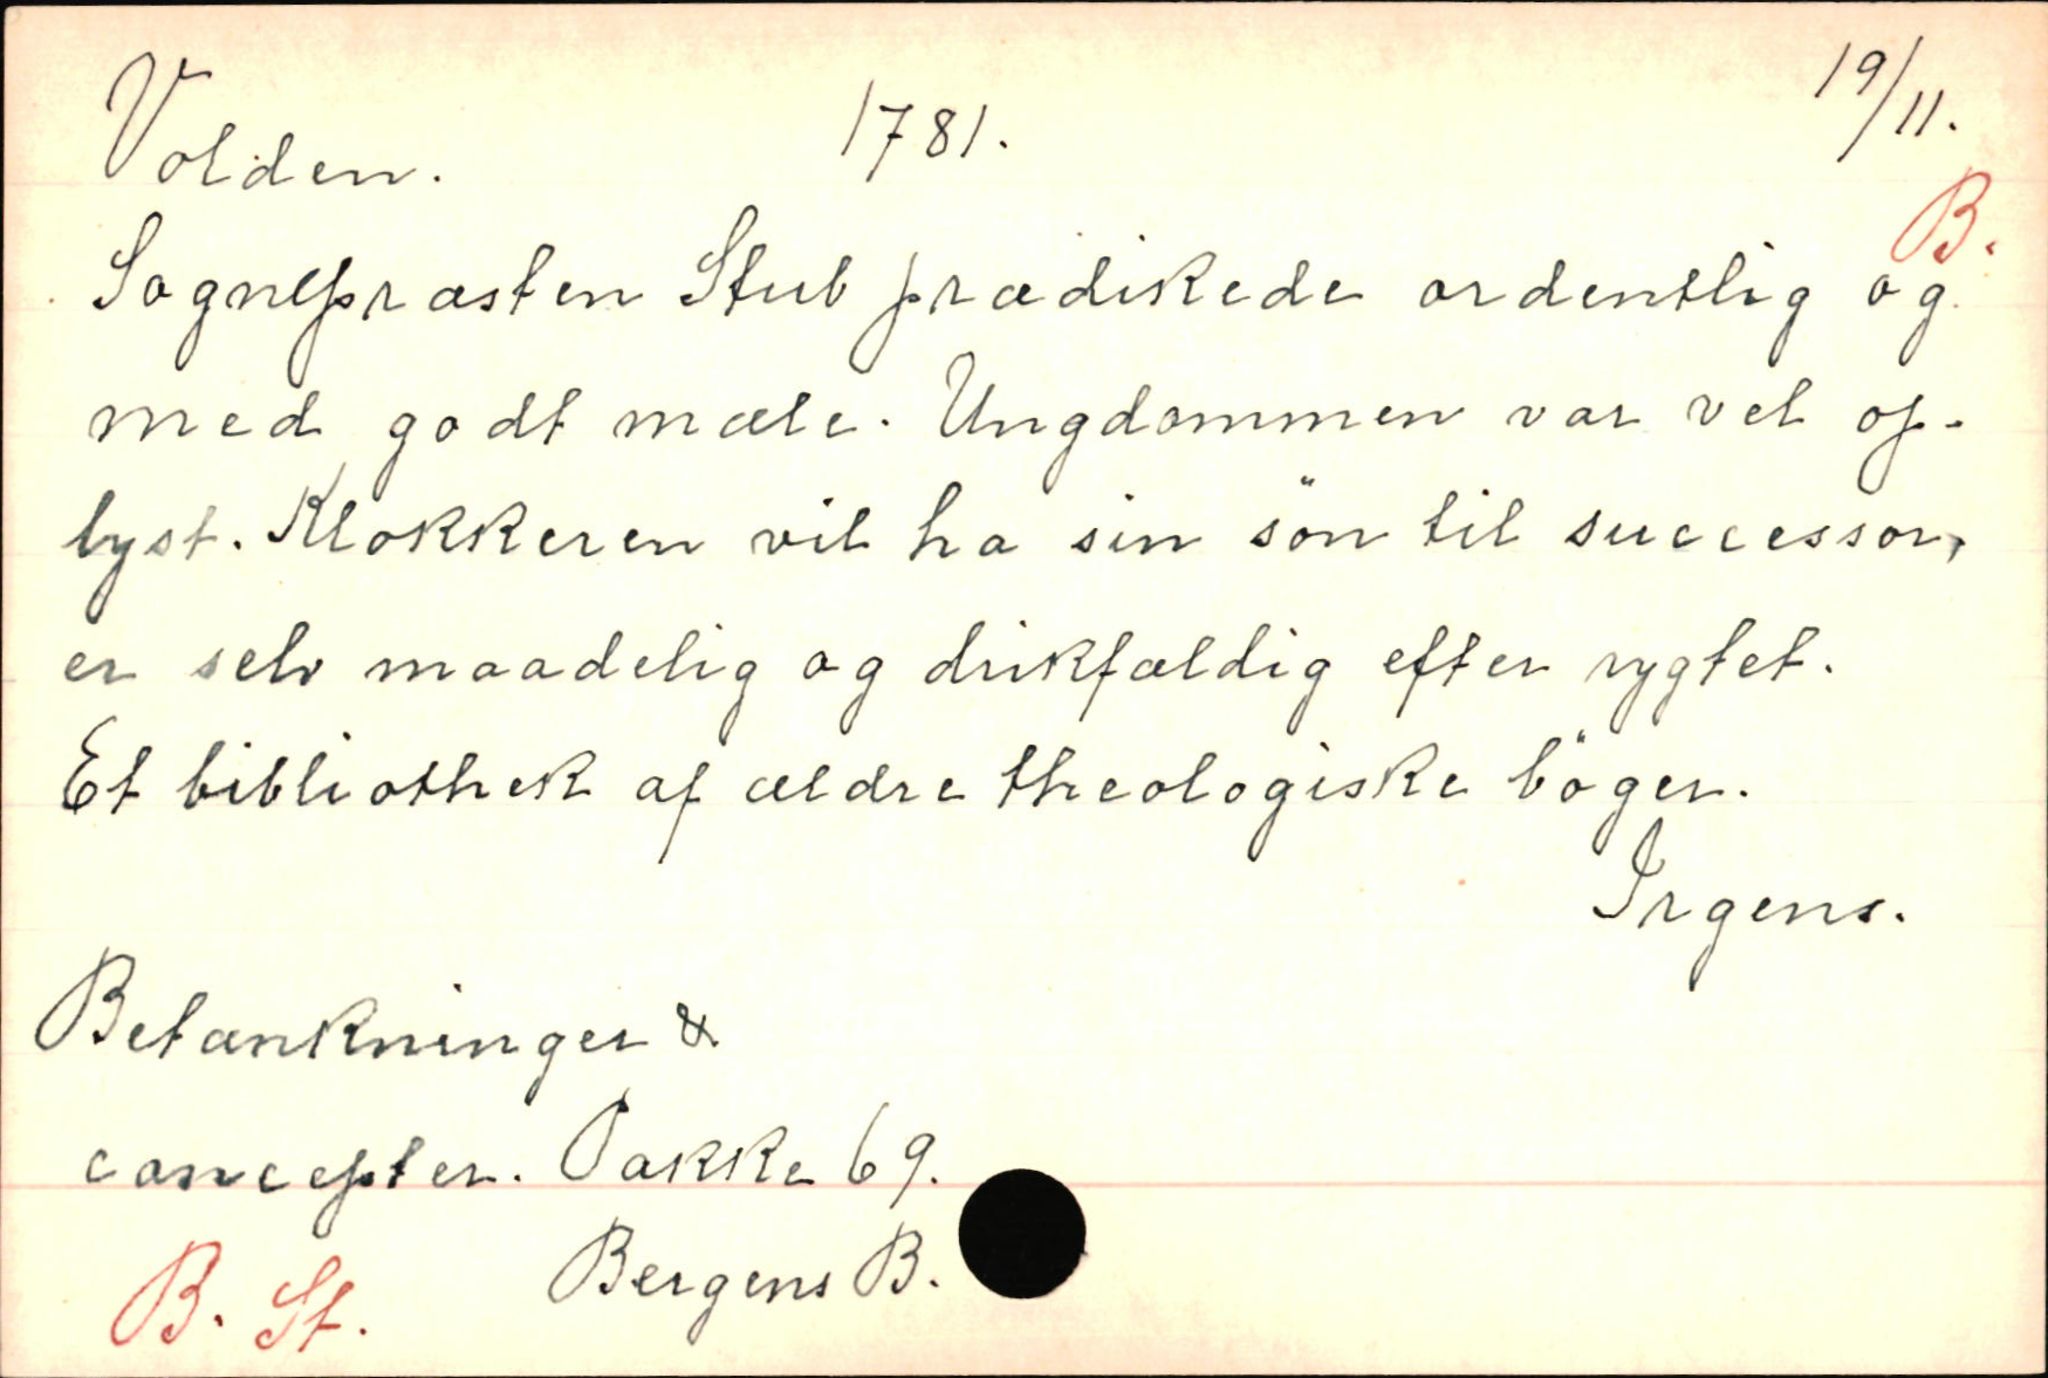 Volden. 1781. 19/11.
B.
Sognepræsten Stub prædikede ordentlig og
med godt mæle. Ungdommen var vel op-
lyst. Klokkeren vil ha sin sön til successor,
er selv maadelig og drikfældig efter rygtet.
Et bibliothek af ældre theologiske böger.
Irgens.
Betænkninger &
concepter. Pakke 69.
B. St. Bergens B.